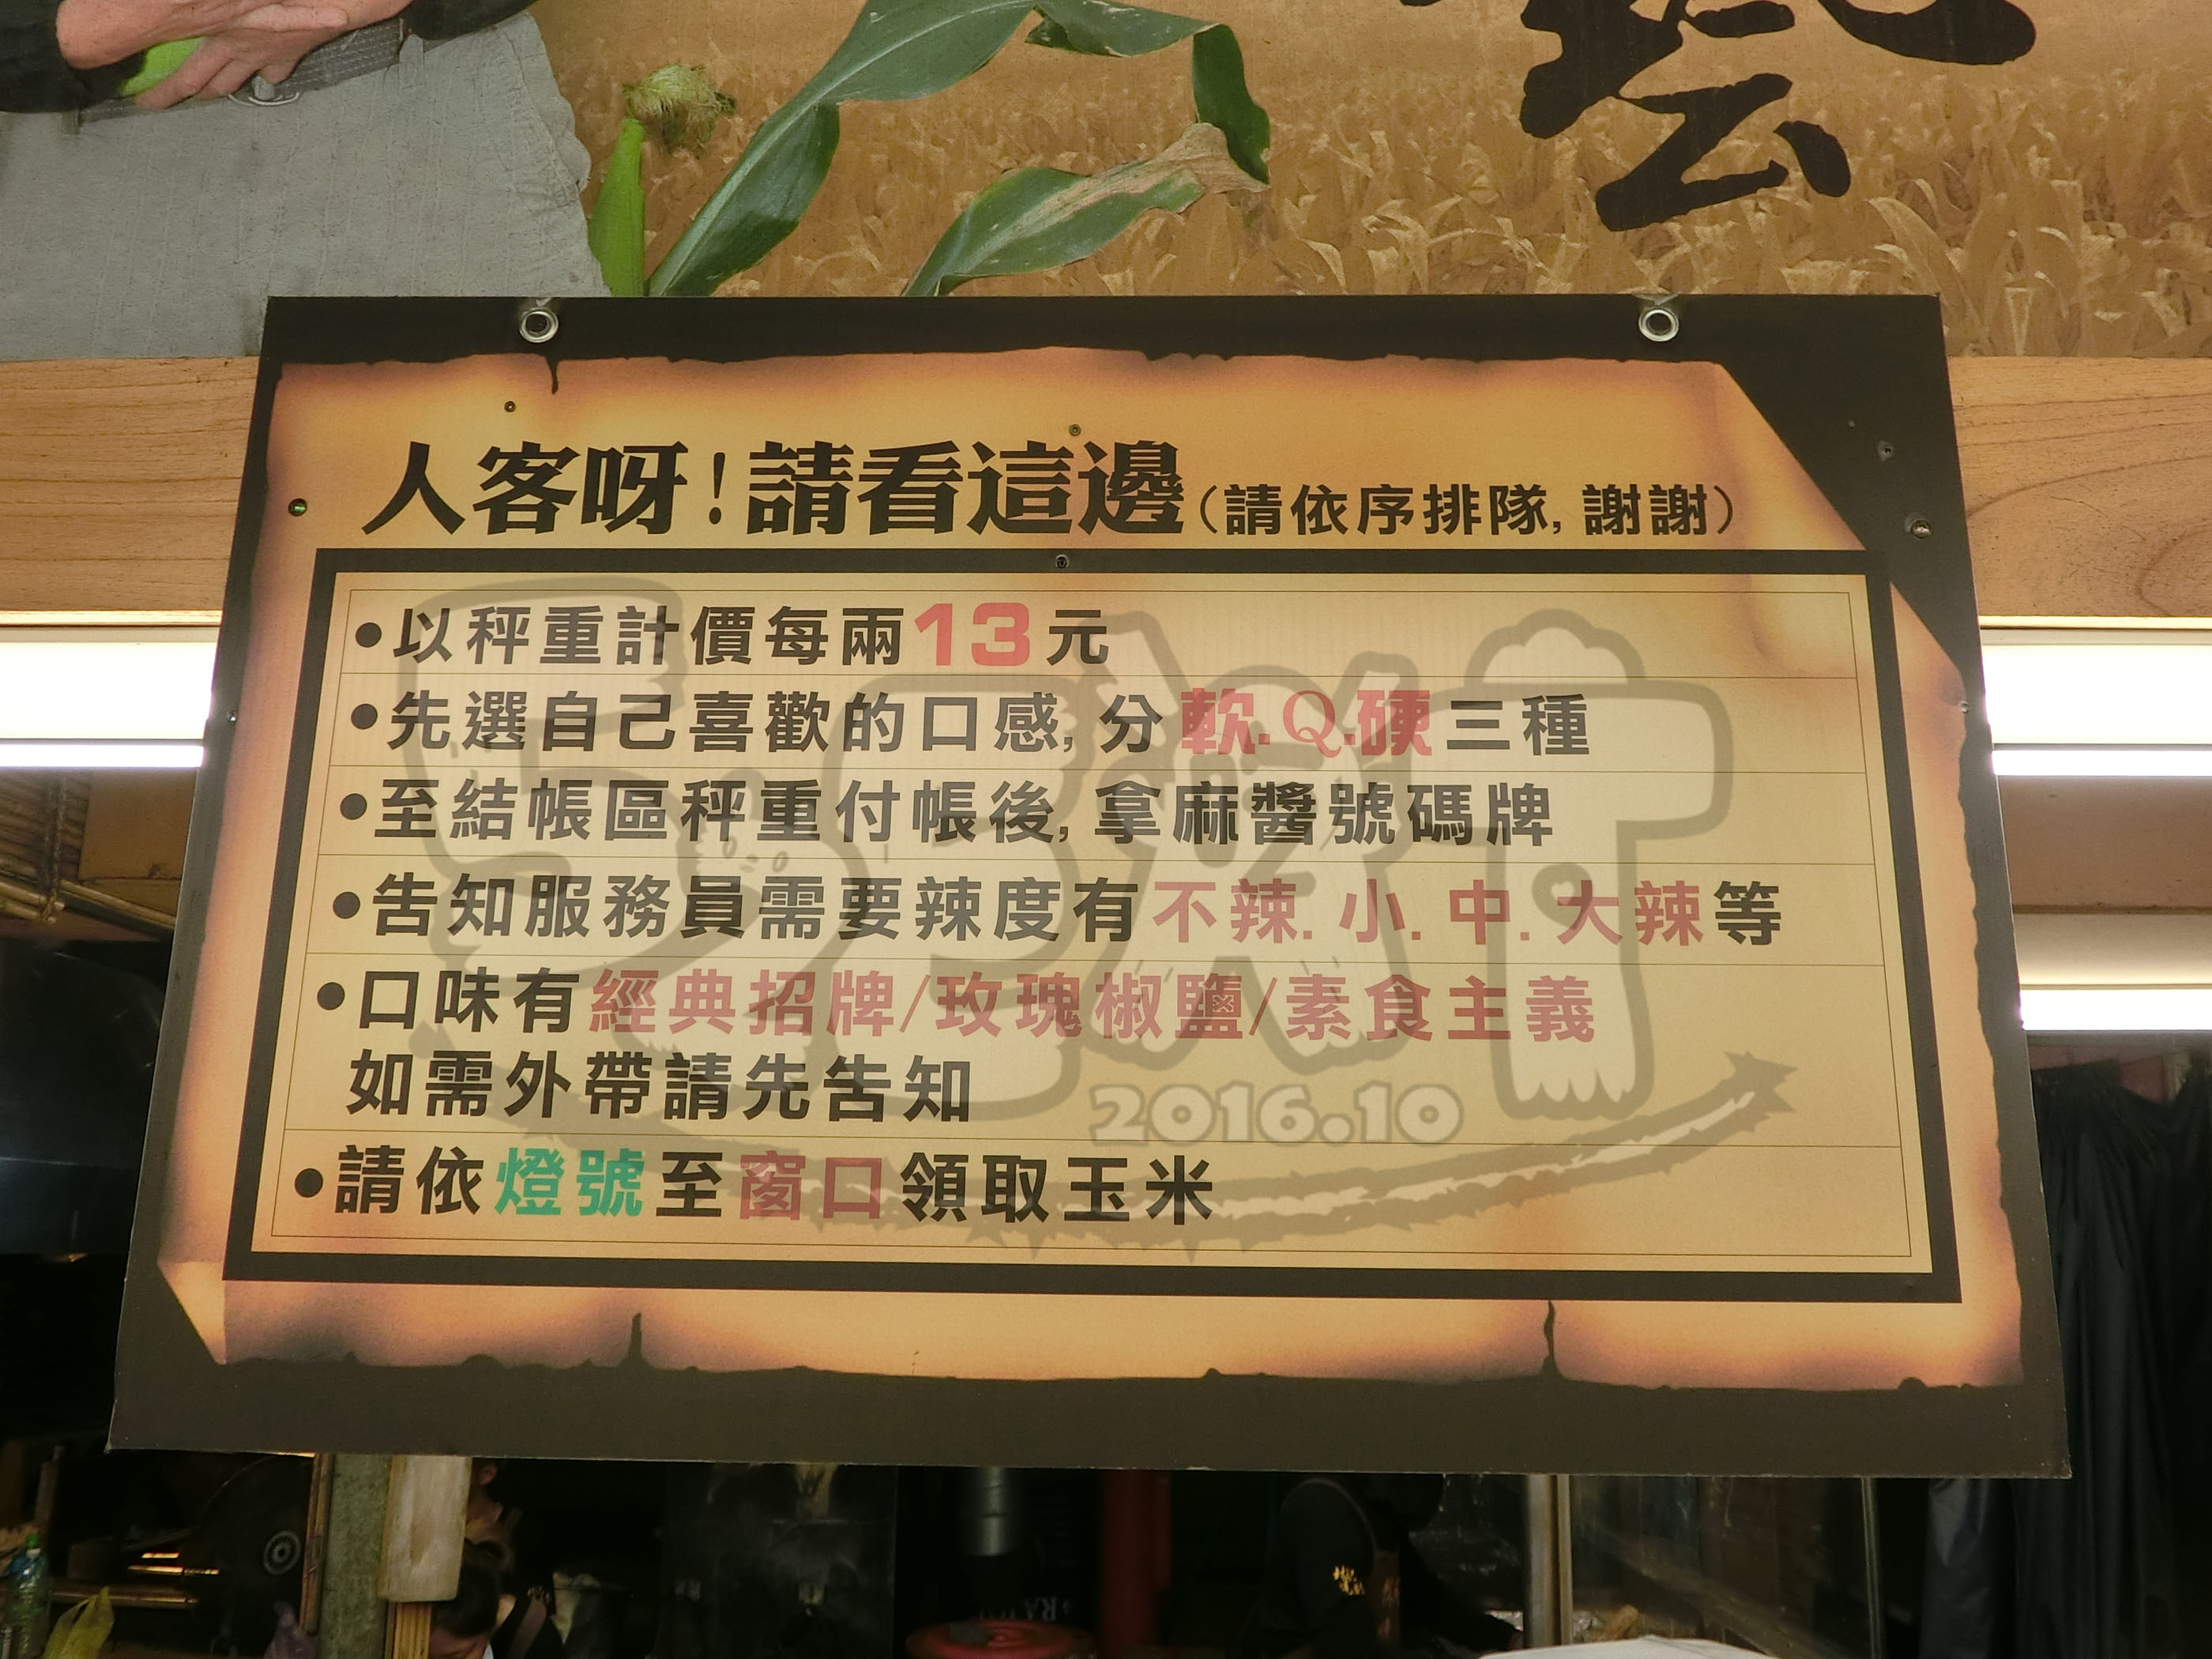 藝
人客呀!請看這邊(請依序排隊,謝謝)
●以秤重計價每兩13元
●先選自己喜歡的口感,分軟.Q.硬三種
●至結帳區秤重付帳後,拿麻醬號碼牌
●告知服務員需要辣度有不辣.小.中.大辣等
●口味有經典招牌/玫瑰椒鹽/素食主義
如需外帶請先告知
2016.10
●請依燈號至窗口領取玉米